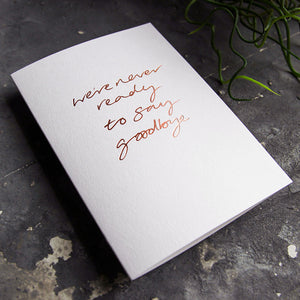 we're never
ready
to say
goodbye